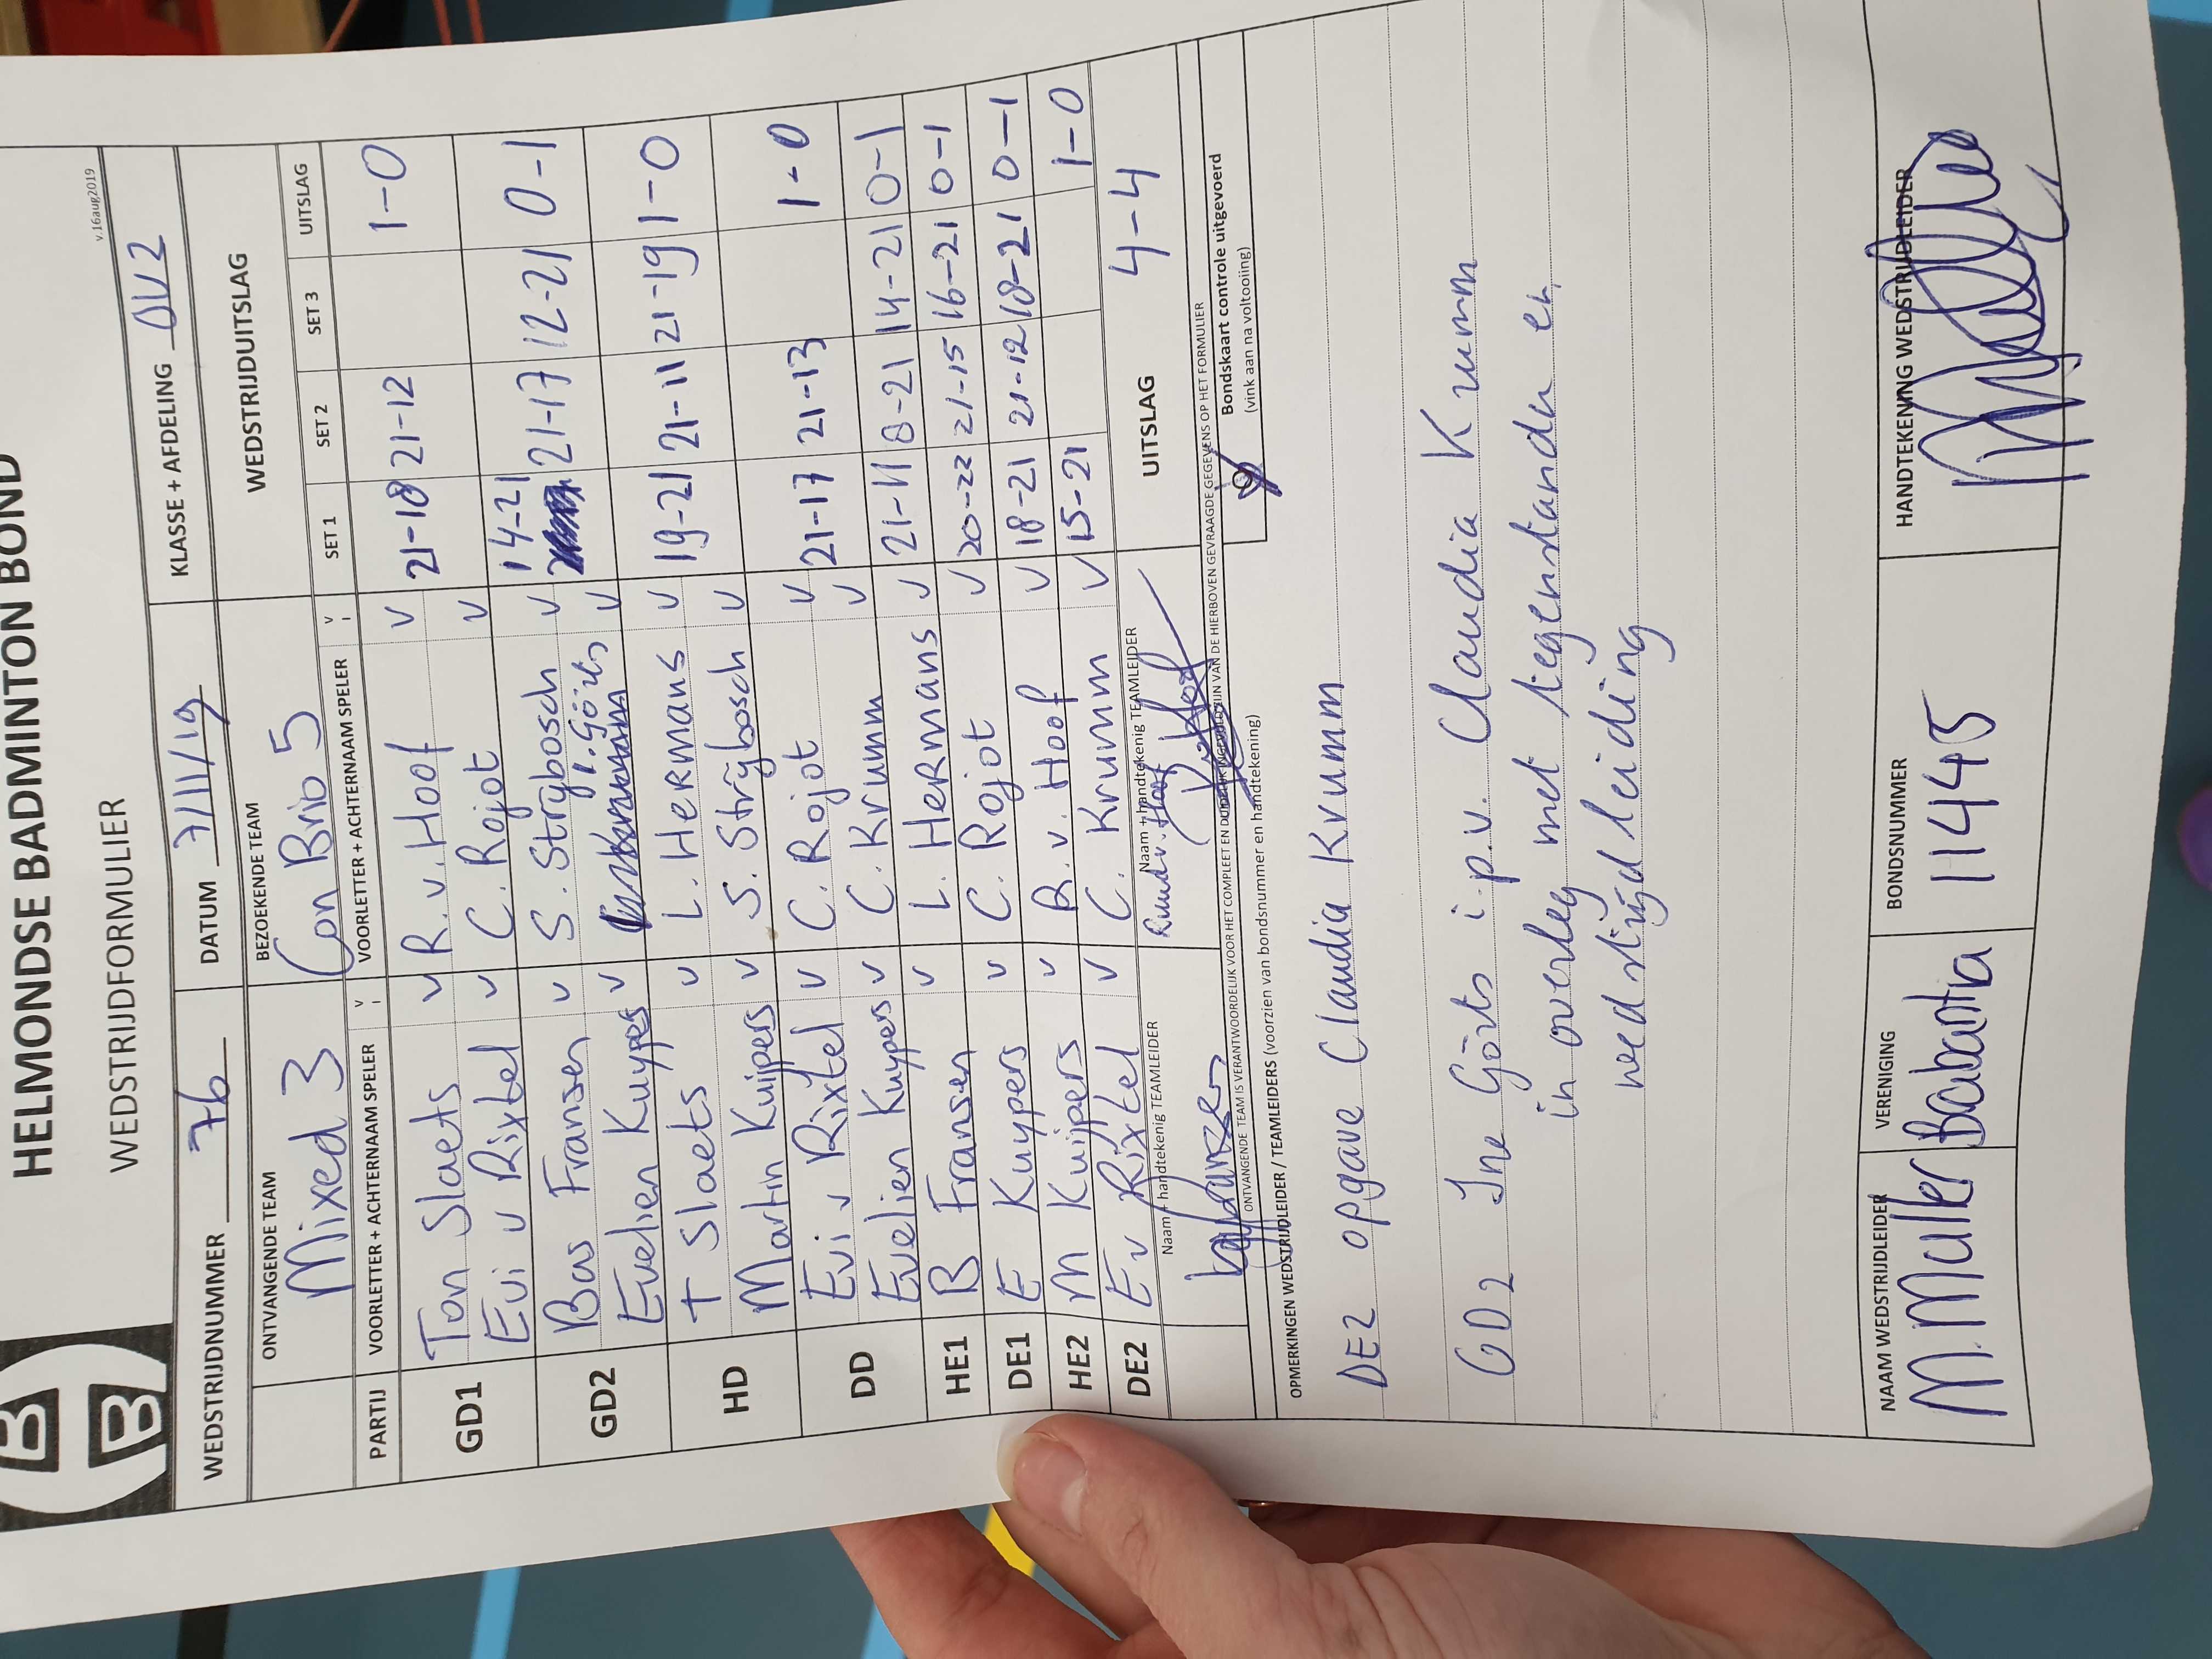 HELMONDSE BADMINTON BOND
WEDSTRIJDFORMULIER
v.16aug2019
WEDSTRIJDNUMMER 76 DATUM 7/11/19 KLASSE + AFDELING OV2
ONTVANGENDE TEAM BEZOEKENDE TEAM WEDSTRIJDUITSLAG
Mixed 3 Con Brio 5
PARTIJ VOORLETTER + ACHTERNAAM SPELER V VOORLETTER + ACHTERNAAM SPELER V SET 1 SET 2 SET 3 UITSLAG
GD1 Ton Slaets V R.v.Hoof V 21-18 21-12 1-0
Evi v Rixtel V C. Rojot V
GD2 Bas Fransen V S. Strijbosch V 14-21 21-17 12-21 0-1
Evelien Kuypers V I. Görts V
HD T Slaets V L. Hermans V 19-21 21-11 21-19 1-0
Martin Kuijpers V S. Strijbosch V
DD Evi v Rixtel V C. Rojot V 21-17 21-13 1-0
Evelien Kuypers V C. Krumm V
HE1 B Fransen V L. Hermans V 21-11 8-21 14-21 0-1
DE1 E Kuypers V C. Rojot V 20-22 21-15 16-21 0-1
HE2 M Kuijpers V R.v. Hoof V 18-21 21-12 18-21 0-1
DE2 E v Rixtel V C. Krumm V 15-21 1-0
Naam + handtekenig TEAMLEIDER Naam + handtekenig TEAMLEIDER UITSLAG 4-4
Ruud v. Hoof
ONTVANGENDE TEAM IS VERANTWOORDELIJK VOOR HET COMPLEET EN DUIDELIJK INGEVULD ZIJN VAN DE HIERBOVEN GEVRAAGDE GEGEVENS OP HET FORMULIER
Bondskaart controle uitgevoerd
(vink aan na voltooiing)
OPMERKINGEN WEDSTRIJDLEIDER / TEAMLEIDERS (voorzien van bondsnummer en handtekening)
DE2 opgave Claudia Krumm
GD2 Ine Görts i.p.v. Claudia Krumm
in overleg met tegenstander en
wedstrijdleiding
NAAM WEDSTRIJDLEIDER VERENIGING BONDSNUMMER HANDTEKENING WEDSTRIJDLEIDER
M. Muller Brabantia 11445